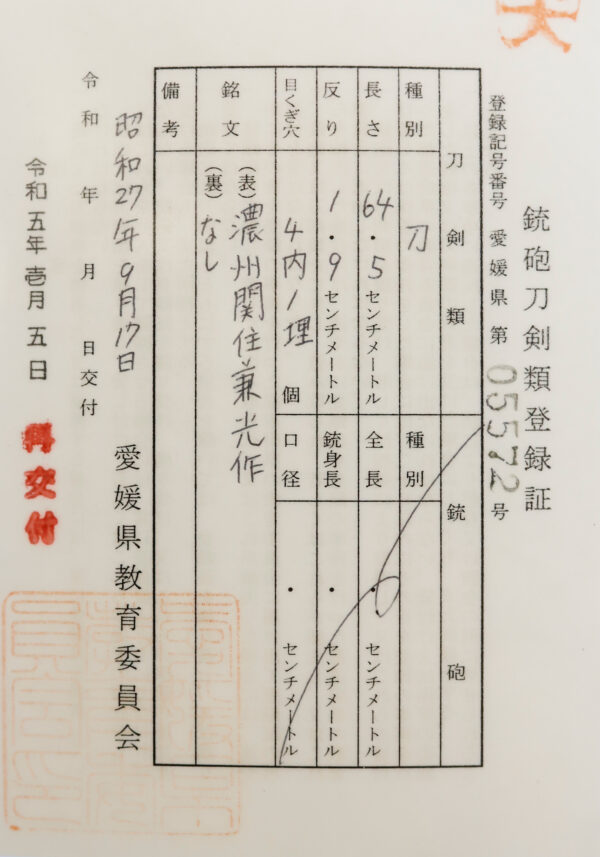 銃砲刀剣類登録証
登録記号番号 愛媛県 第 05572 号
刀剣類
銃砲
種別 刀
種別
長さ 64・5 センチメートル
全長 ・ センチメートル
反り 1・9 センチメートル
銃身長 ・ センチメートル
目くぎ穴 4内1埋 個
口径 ・ センチメートル
銘文 (表) 濃州関住兼光作
(裏) なし
備考
昭和27年9月17日
令和 年 月 日交付
愛媛県教育委員会
令和五年壱月五日 再交付